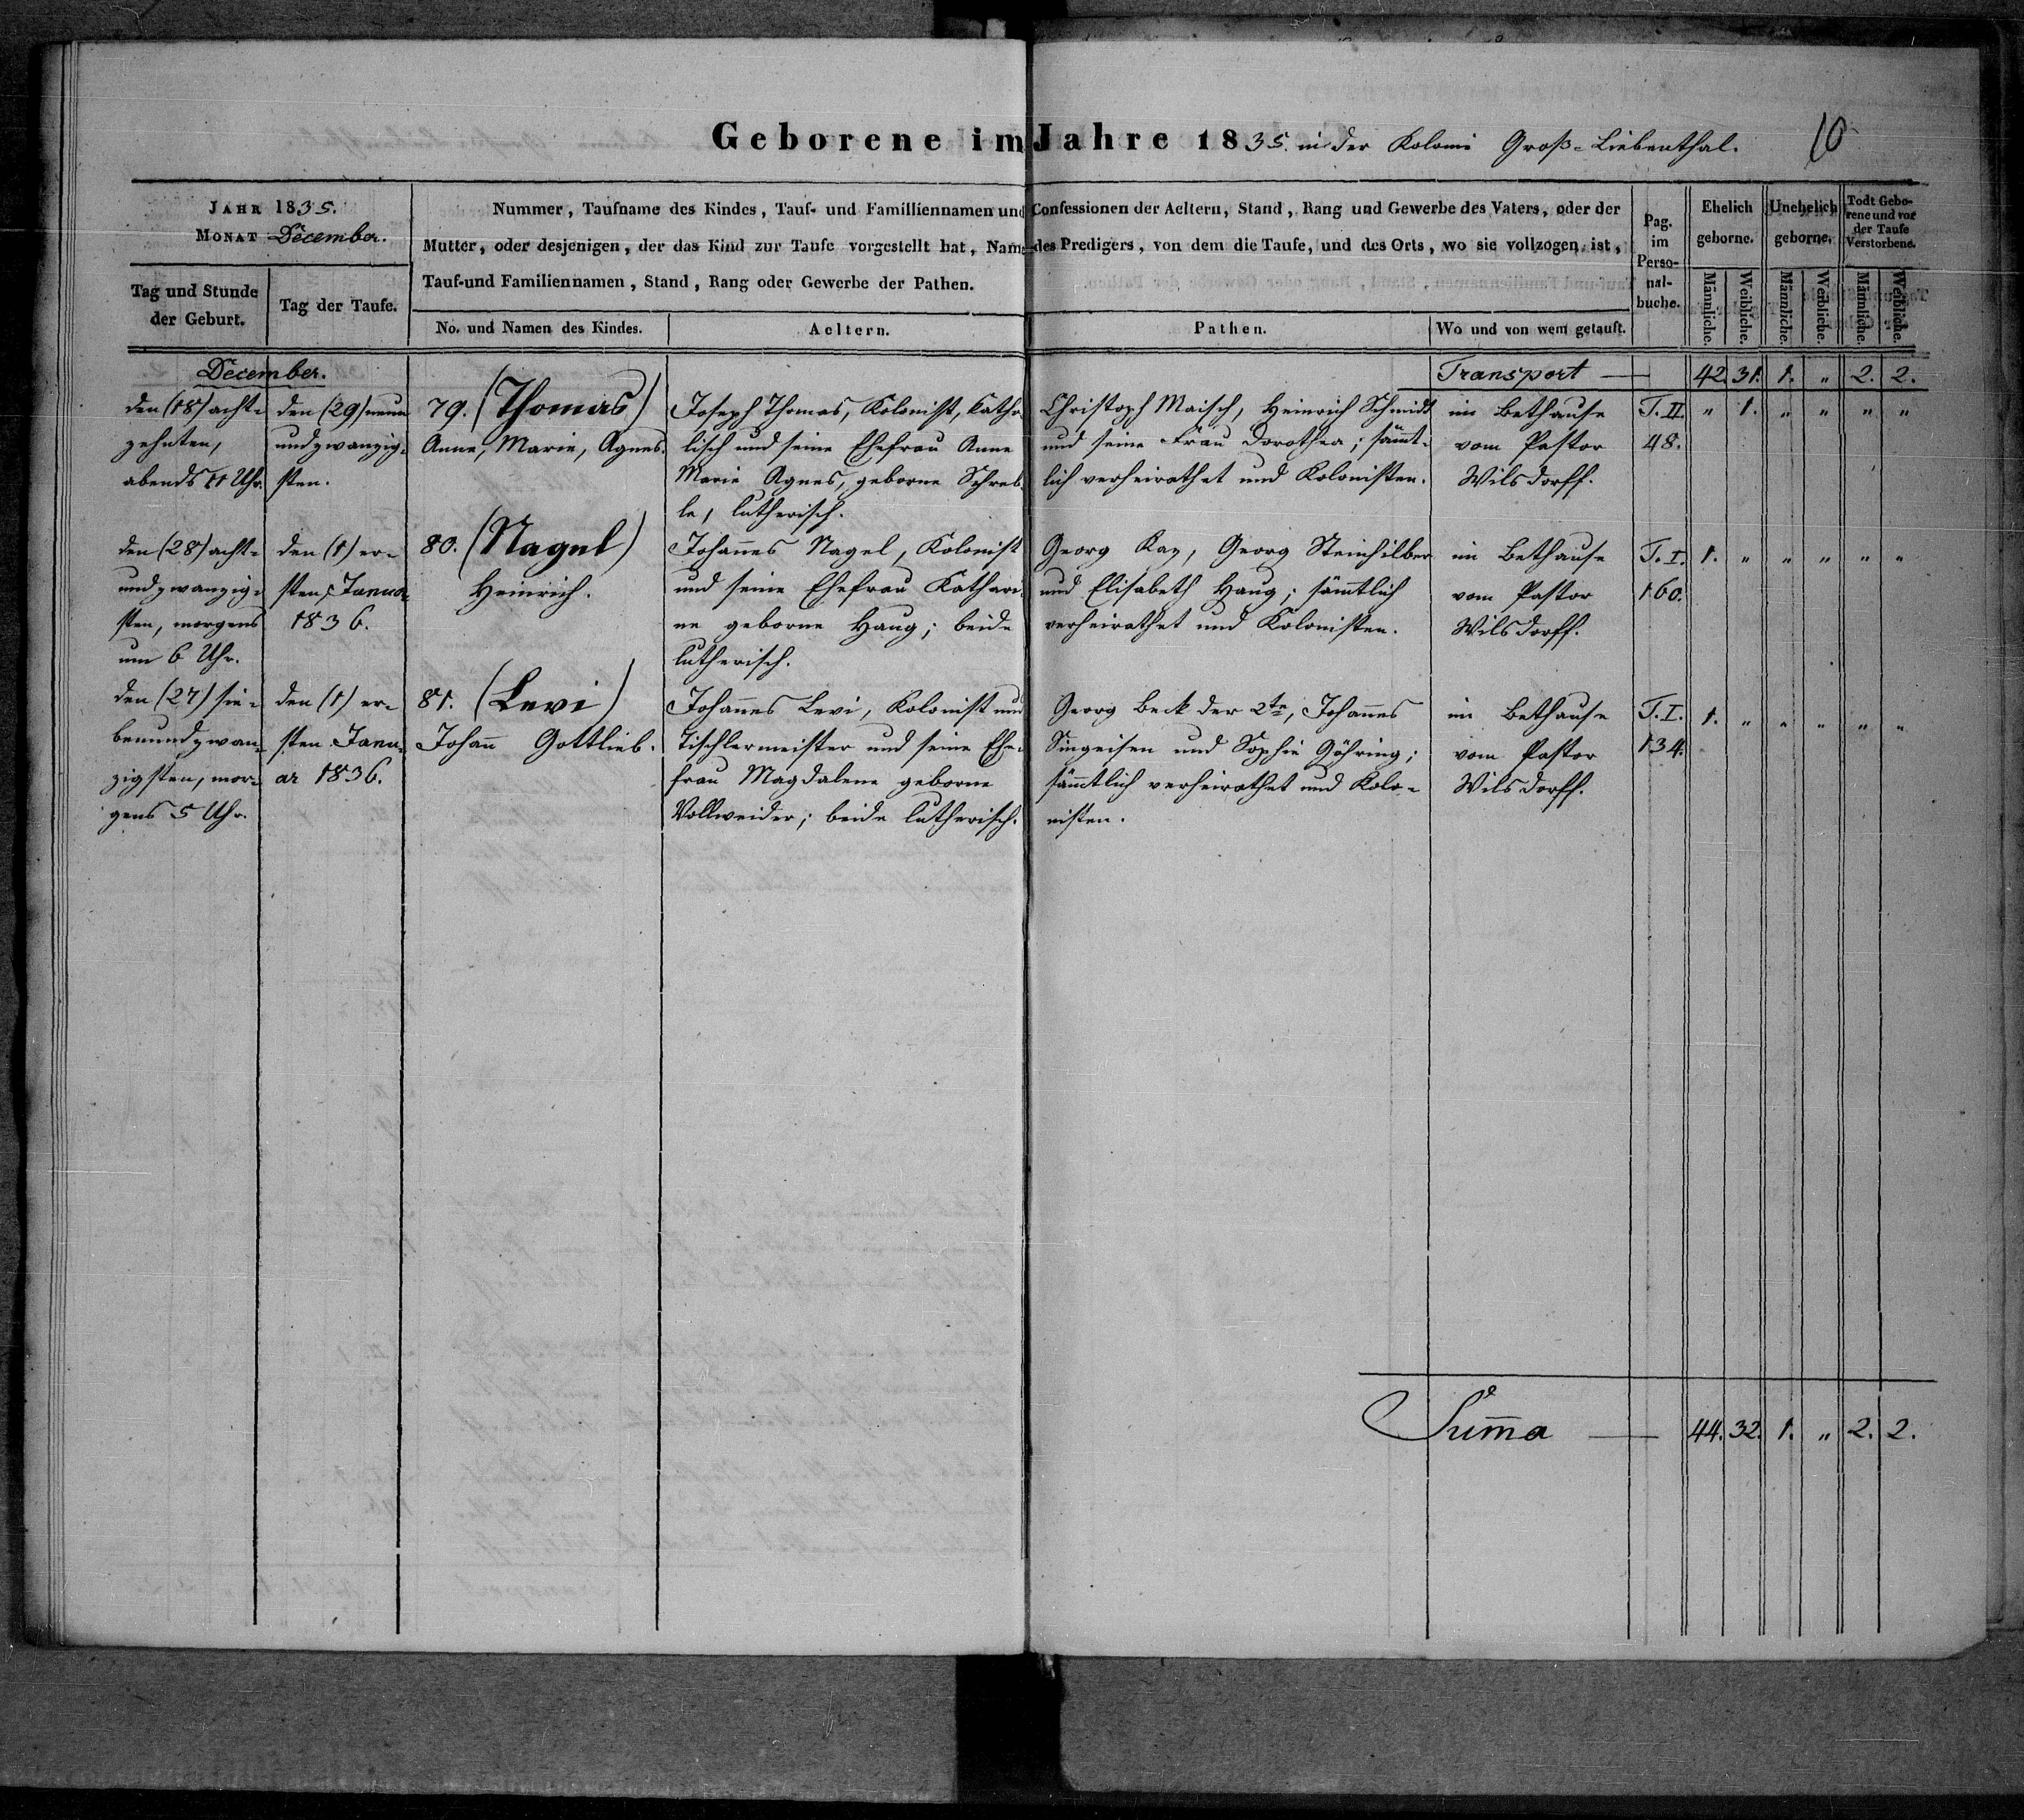 Geborene im Jahre 1835. in der Kolonie Groß-Liebenthal. 10
JAHR 1835.
MONAT December.
Nummer, Taufname des Kindes, Tauf- und Familliennamen und Confessionen der Aeltern, Stand, Rang und Gewerbe des Vaters, oder der
Mutter, oder desjenigen, der das Kind zur Taufe vorgestellt hat, Name des Predigers, von dem die Taufe, und des Orts, wo sie vollzogen ist,
Tauf-und Familiennamen, Stand, Rang oder Gewerbe der Pathen.
Tag und Stunde
der Geburt.
Tag der Taufe.
No. und Namen des Kindes.
Aeltern.
Pathen.
Wo und von wem getauft.
Pag.
im
Perso-
nal-
buche.
Ehelich
geborne.
Unehelich
geborne.
Todt Gebo-
rene und vor
der Taufe
Verstorbene.
Männliche.
Weibliche.
Männliche.
Weibliche.
Männliche.
Weibliche.
December.
Transport — 42. 31. 1. " 2. 2.
den (18) acht-
zehnten,
abends 11 Uhr.
den (29) neun
undzwanzig-
sten.
79. (Thomas)
Anna, Marie, Agnes.
Joseph Thomas, Kolonist, katho-
lisch und seine Ehefrau Anne
Marie Agnes, geborne Schreb-
le, lutherisch.
Christoph Maisch, Heinrich Schmidt
und seine Frau Dorothea; sämt-
lich verheirathet und Kolonisten.
im Bethause
vom Pastor
Wilsdorff.
T. II.
48.
" 1. " " " "
den (28) acht-
undzwanzig-
sten, morgens
um 6 Uhr.
den (1) er-
sten Janua
1836.
80. (Nagel)
Heinrich.
Johannes Nagel, Kolonist
und seine Ehefrau Kathari-
ne geborne Haug; beide
lutherisch.
Georg Kay, Georg Steinhilber
und Elisabeth Haug; sämtlich
verheirathet und Kolonisten.
im Bethause
vom Pastor
Wilsdorff.
T. I.
160.
1. " " " " "
den (27) sie-
benundzwan-
zigsten, mor-
gens 5 Uhr.
den (1) er-
sten Janu-
ar 1836.
81. (Levi)
Johann Gottlieb.
Johannes Levi, Kolonist und
Tischlermeister und seine Ehe-
frau Magdalene geborne
Vollweider; beide lutherisch.
Georg Beck der 2te, Johannes
Singeisen und Sophie Göhring;
sämtlich verheirathet und Kolo-
nisten.
im Bethause
vom Pastor
Wilsdorff.
T. I.
134.
1. " " " " "
Summa — 44. 32. 1. " 2. 2.